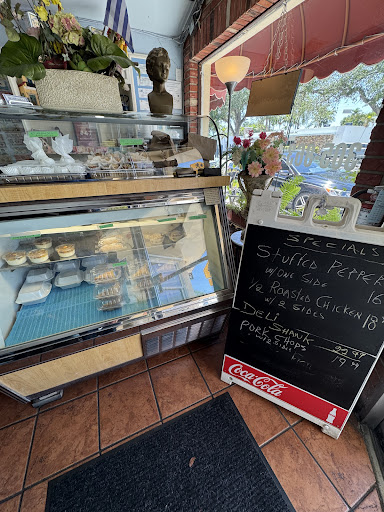 SPECIALS
STUFFED PEPPER
W/ONE SIDE 16
1/2 ROASTED CHICKEN 18
W/ 2 SIDES
DELI
SHANK 22.99
PORK CHOPS 19
W/2 SIDES
Coca-Cola